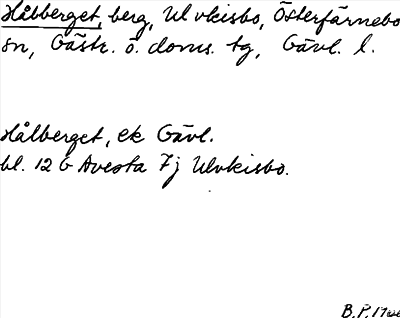 Hålbberget, berg, Ulvkisbo, Österfärnebo
sn, Gästr. ö. doms. tg, Gävl. l.
Hålberget, ek Gävl.
bl. 12 G Avesta 7j Ulvkisbo.
B.P.